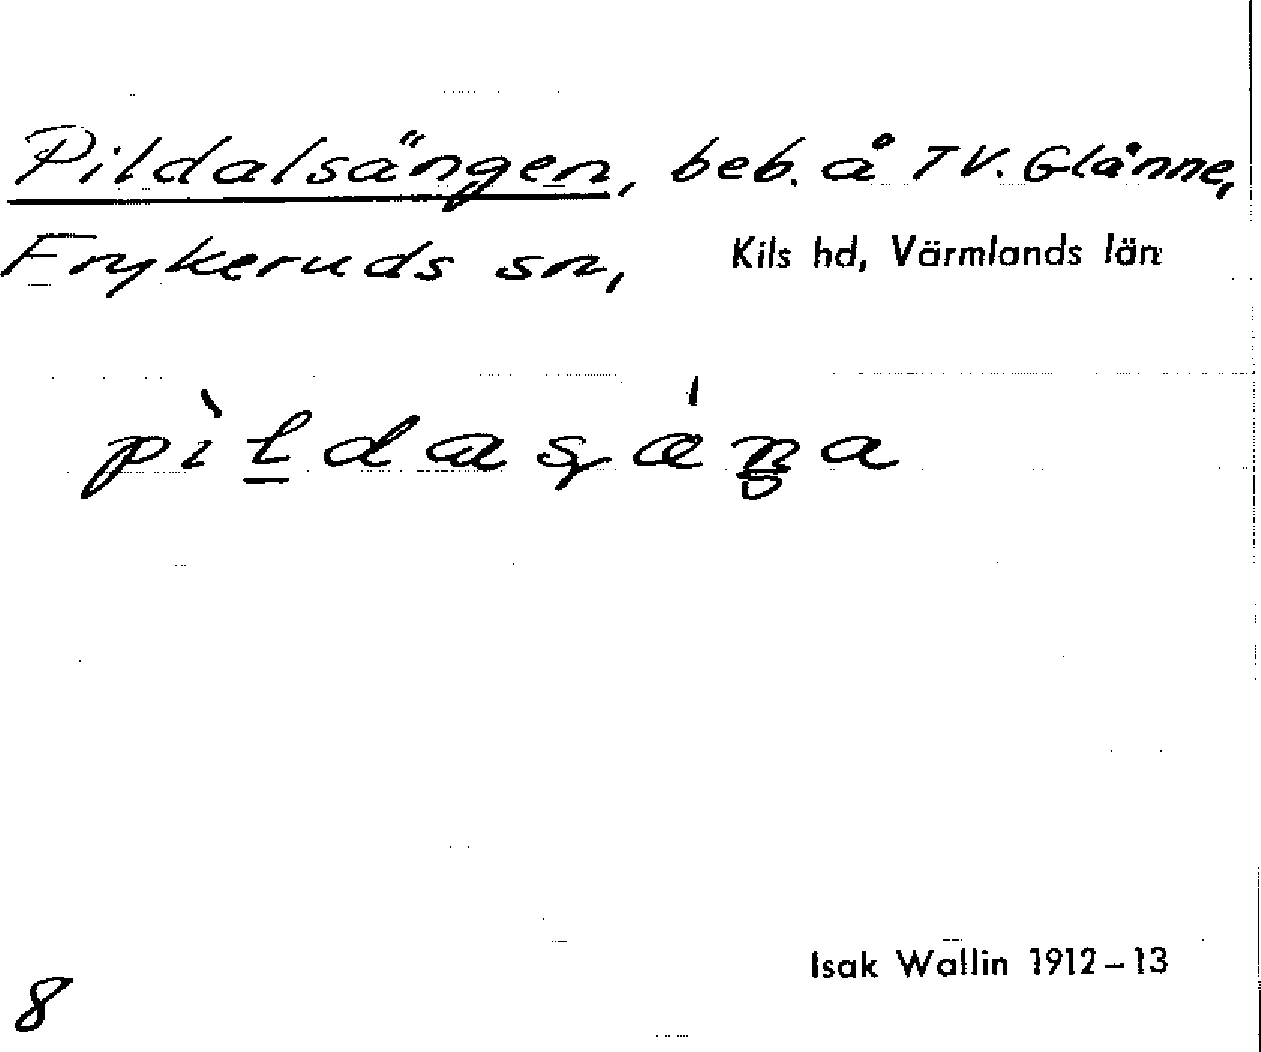 Pildalsängen, beb. å TV. Glänne,
Frykeruds sn, Kils hd, Värmlands län
Isak Wallin 1912–13
8